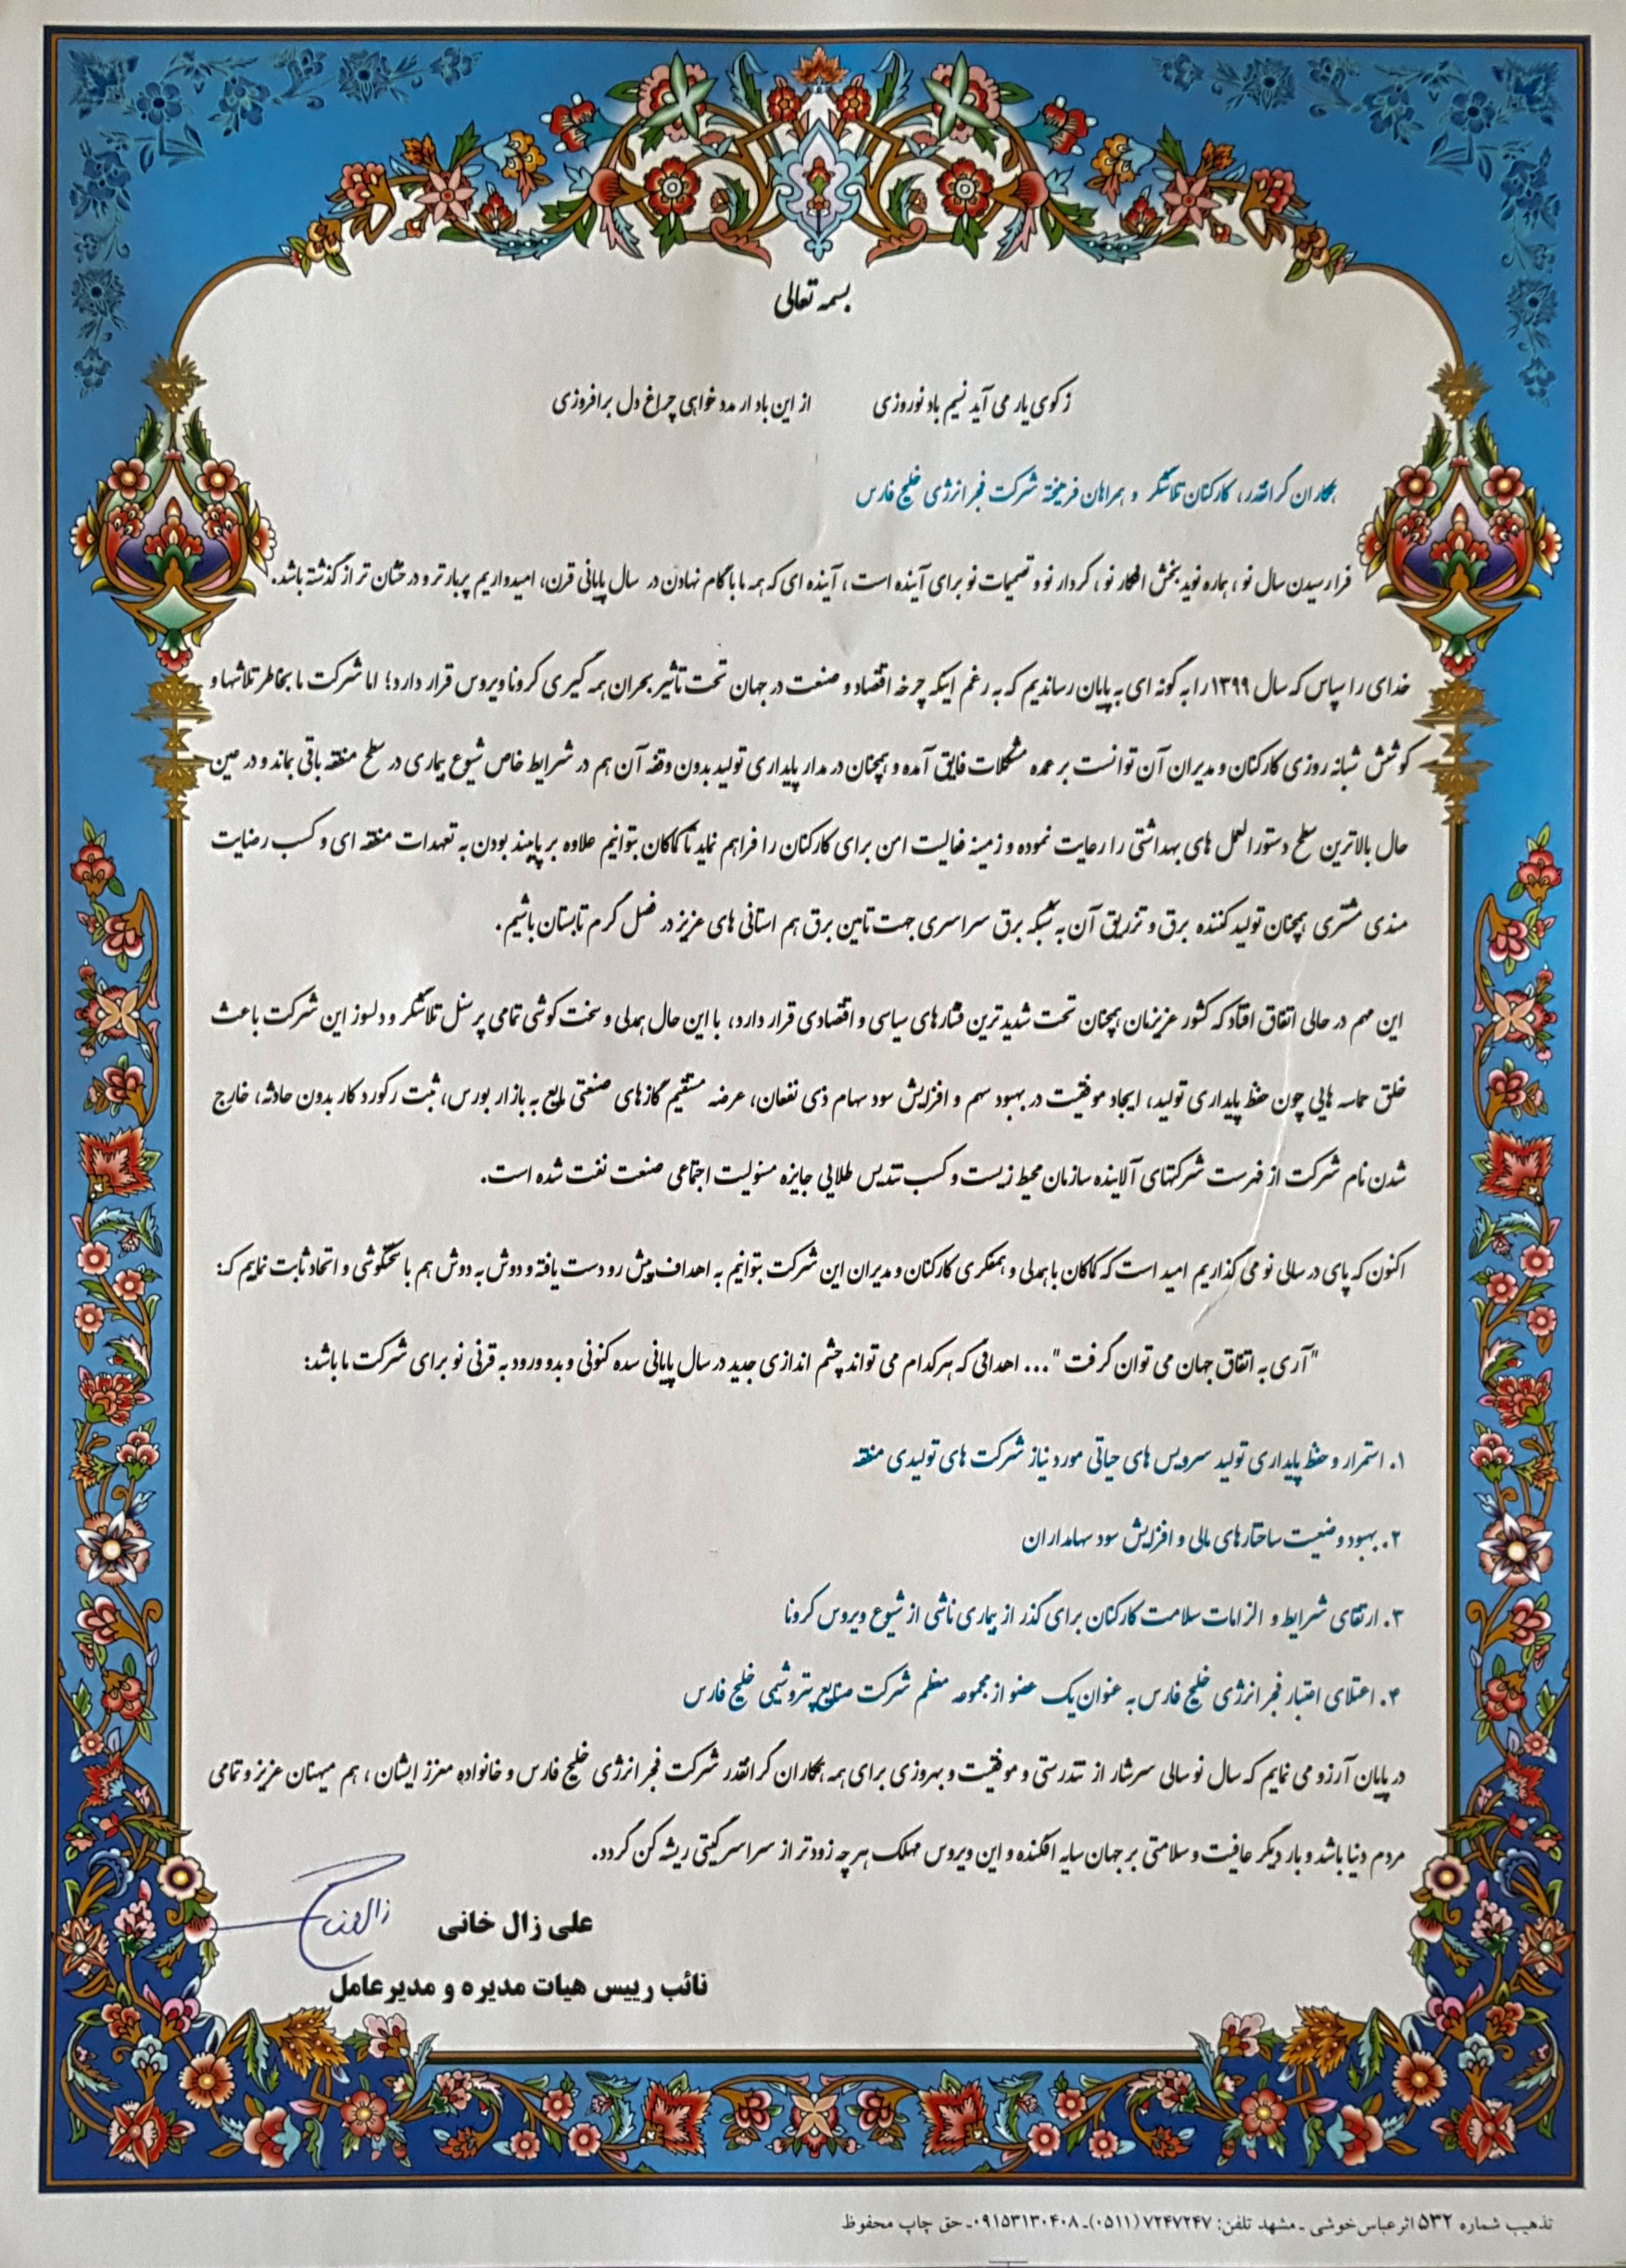 بسمه تعالی
ز کوی یار می آید نسیم باد نوروزی از این باد ار مدد خواهی چراغ دل برافروزی
همکاران گرانقدر، کارکنان تلاشگر و همراهان فرهیخته شرکت فجر انرژی خلیج فارس
فرا رسیدن سال نو ، هماره نوید بخش افکار نو ، کردار نو و تصمیمات نو برای آینده است ، آینده ای که همه ما با گام نهادن در سال پایانی قرن، امیدواریم پربار تر و درخشان تر از گذشته باشد.
خدای را سپاس که سال ۱۳۹۹ را به گونه ای به پایان رساندیم که به رغم اینکه چرخه اقتصاد و صنعت در جهان تحت تاثیر بحران همه گیری کرونا ویروس قرار دارد؛ اما شرکت ما بخاطر تلاشها و
کوشش شبانه روزی کارکنان و مدیران آن توانست بر عمده مشکلات فایق آمده و همچنان در مدار پایداری تولید بدون وقفه آن هم در شرایط خاص شیوع بیماری در سطح منطقه باقی بماند و در عین
حال بالاترین سطح دستورالعمل های بهداشتی را رعایت نموده و زمینه فعالیت امن برای کارکنان را فراهم نماید تا کماکان بتوانیم علاوه بر پایبند بودن به تعهدات منطقه ای و کسب رضایت
مندی مشتری همچنان تولید کننده برق و تزریق آن به شبکه برق سراسری جهت تامین برق هم استانی های عزیز در فصل گرم تابستان باشیم.
این مهم در حالی اتفاق افتاد که کشور عزیزمان همچنان تحت شدید ترین فشارهای سیاسی و اقتصادی قرار دارد، با این حال همدلی و سخت کوشی تمامی پرسنل تلاشگر و دلسوز این شرکت باعث
خلق حماسه هایی چون حفظ پایداری تولید، ایجاد موفقیت در بهبود سهم و افزایش سود سهام ذی نفعان، عرضه مستقیم گازهای صنعتی مایع به بازار بورس، ثبت رکورد کار بدون حادثه، خارج
شدن نام شرکت از فهرست شرکتهای آلاینده سازمان محیط زیست و کسب تندیس طلایی جایزه مسئولیت اجتماعی صنعت نفت شده است.
اکنون که پای در سالی نو می گذاریم امید است که کماکان با همدلی و همفکری کارکنان و مدیران این شرکت بتوانیم به اهداف پیش رو دست یافته و دوش به دوش هم با سختکوشی و اتحاد ثابت نماییم که:
"آری به اتفاق جهان می توان گرفت "... اهدافی که هرکدام می تواند چشم اندازی جدید در سال پایانی سده کنونی و بدو ورود به قرنی نو برای شرکت ما باشد:
۱. استمرار و حفظ پایداری تولید سرویس های حیاتی مورد نیاز شرکت های تولیدی منطقه
۲. بهبود وضعیت ساختارهای مالی و افزایش سود سهامداران
۳. ارتقای شرایط و الزامات سلامت کارکنان برای گذر از بیماری ناشی از شیوع ویروس کرونا
۴. اعتلای اعتبار فجر انرژی خلیج فارس به عنوان یک عضو از مجموعه معظم شرکت صنایع پتروشیمی خلیج فارس
در پایان آرزو می نمایم که سال نو سالی سرشار از تندرستی و موفقیت و بهروزی برای همه همکاران گرانقدر شرکت فجر انرژی خلیج فارس و خانواده معزز ایشان ، هم میهنان عزیز و تمامی
مردم دنیا باشد و بار دیگر عافیت و سلامتی بر جهان سایه افکنده و این ویروس مهلک هر چه زودتر از سراسر گیتی ریشه کن گردد.
علی زال خانی
نائب رییس هیات مدیره و مدیرعامل
تذهیب شماره ۵۳۲ اثر عباس خوشی - مشهد تلفن: ۷۲۴۷۲۴۷ (۰۵۱۱)-۰۹۱۵۳۱۳۰۴۰۸- حق چاپ محفوظ